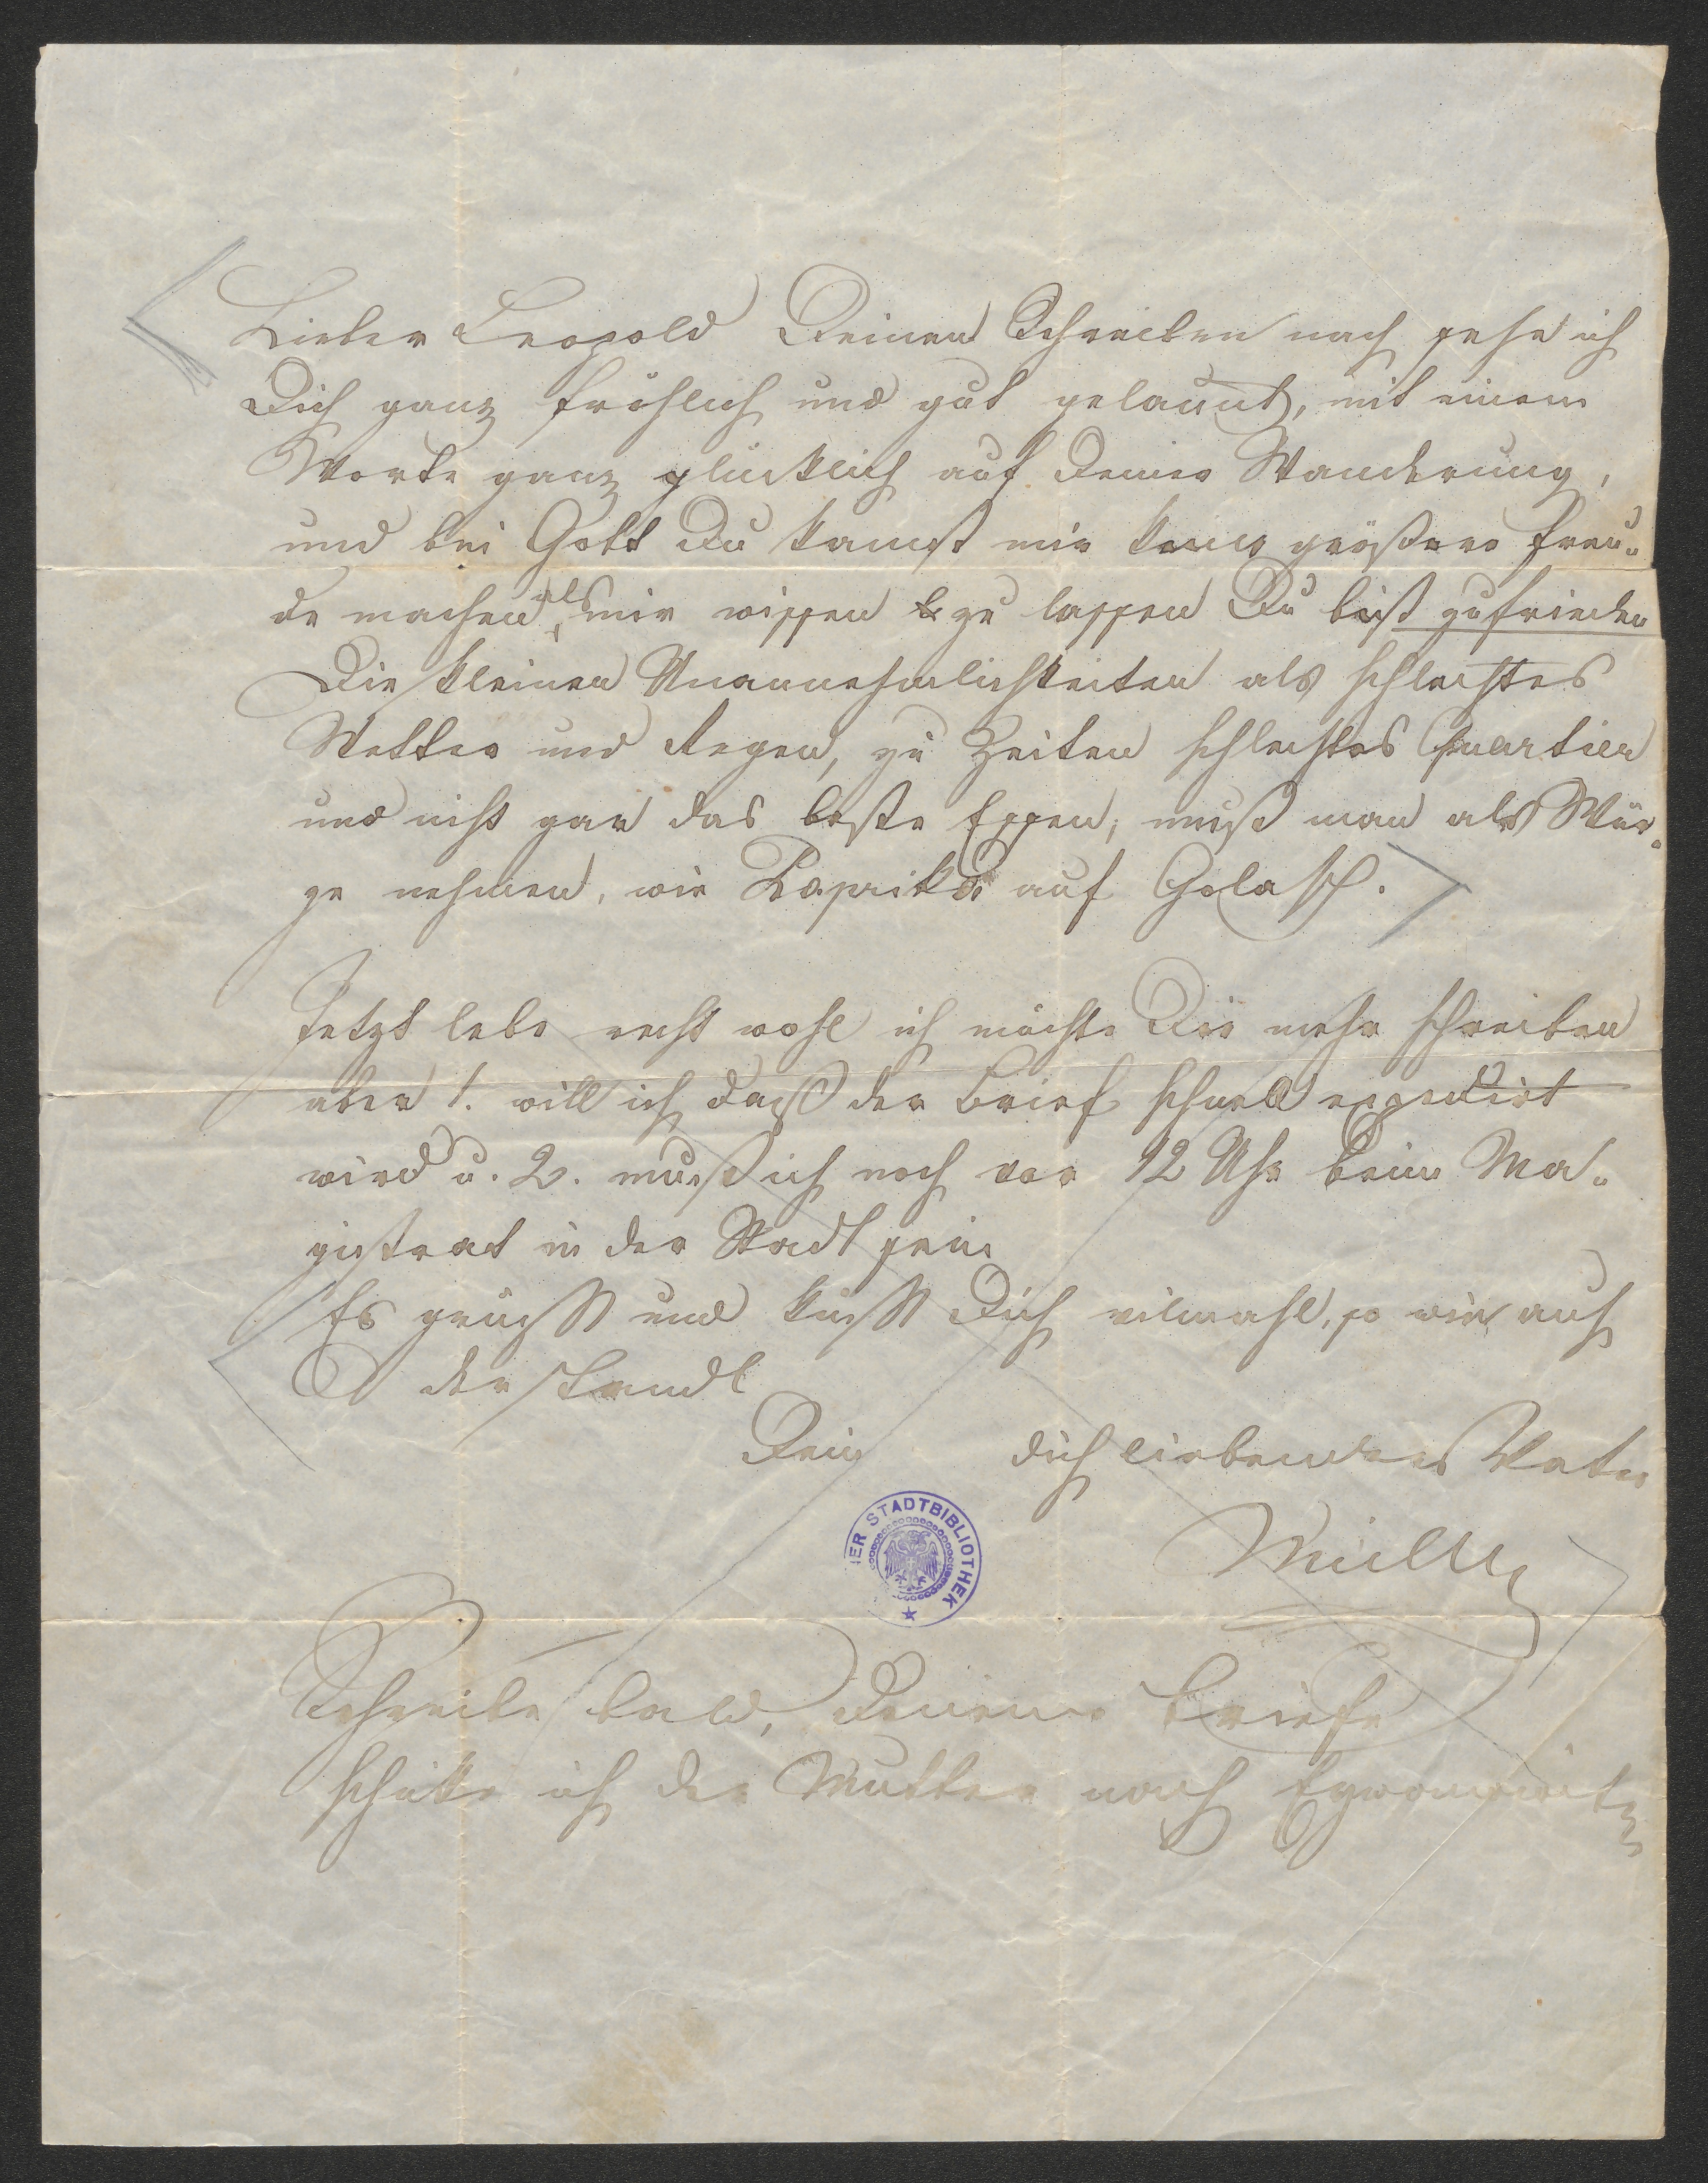 Lieber Leopold Deinen Schreiben nach sehe ich
Dich ganz fröhlich und gut gelaunt, mit einem
Worte ganz glücklich auf Deiner Wanderung,
und bei Gott Du kannst mir keine größere Freu-
de machen, als mir wissen zu lassen Du bist zufrieden
Die kleinen Unannehmlichkeiten als schlechtes
Wetter und Regen, zu Zeiten schlechtes Quartier
und nicht gar das beste Essen, muß man als Wür-
ze nehmen, wie Paprika auf Golasch.
Jetzt lebe recht wohl ich möchte Dir mehr schreiben
aber 1. will ich daß der Brief schnell expedirt
wird u. 2. muß ich noch vor 12 Uhr beim Ma-
gistrat in der Stadt sein
Es grüßt und küßt Dich vilmahl, so wie auch
der
Dein dich liebender Vater
Müller
WIENER STADTBIBLIOTHEK
Schreibe bald, Deine Briefe
schicke ich der Mutter nach